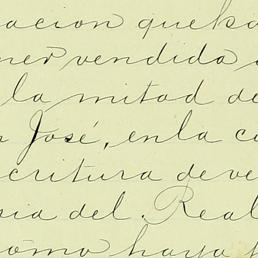 acion que ha
ner vendida
la mitad de
n José, en la co
scritura de ve
sia del Real
como haya p